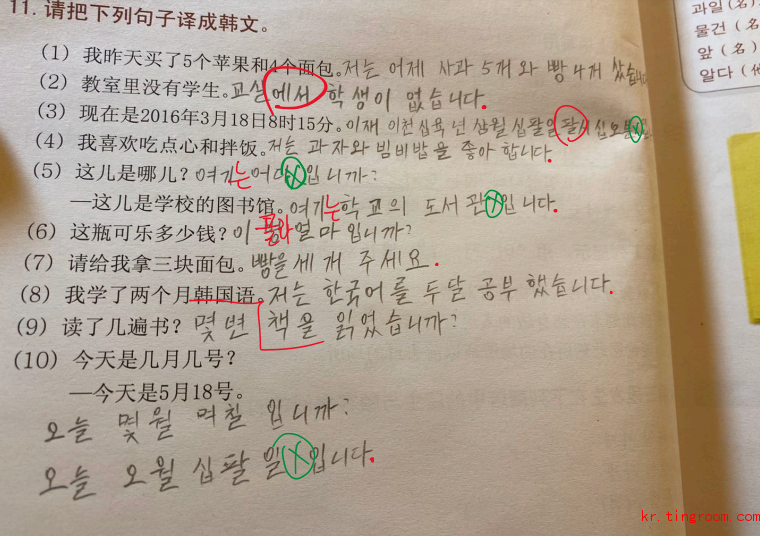 11. 请把下列句子译成韩文。
(1) 我昨天买了5个苹果和4个面包。저는 어제 사과 5개 와 빵 4개 샀습니다
(2) 教室里没有学生。교실에서 학생이 없습니다.
(3) 现在是2016年3月18日8时15分。이재 이천십육년 삼월 십팔일 팔시 십오분
(4) 我喜欢吃点心和拌饭。저는 과자와 빔비밥을 좋아 합니다.
(5) 这儿是哪儿? 여기는 어디 입니까?
—这儿是学校的图书馆。여기는 학교의 도서관 입니다.
(6) 这瓶可乐多少钱? 이 얼마입니까?
(7) 请给我拿三块面包。빵을 세개 주세요.
(8) 我学了两个月韩国语。저는 한국어를 두달 공부 했습니다.
(9) 读了几遍书? 몇 번 책을 읽었습니까?
(10) 今天是几月几号?
—今天是5月18号。
오늘 몇월 며칠 입니까?
오늘 오월 십팔일 입니다.
过去 (名)
物건 (名)
앞 (名)
알다 (他
kr.tingroom.com